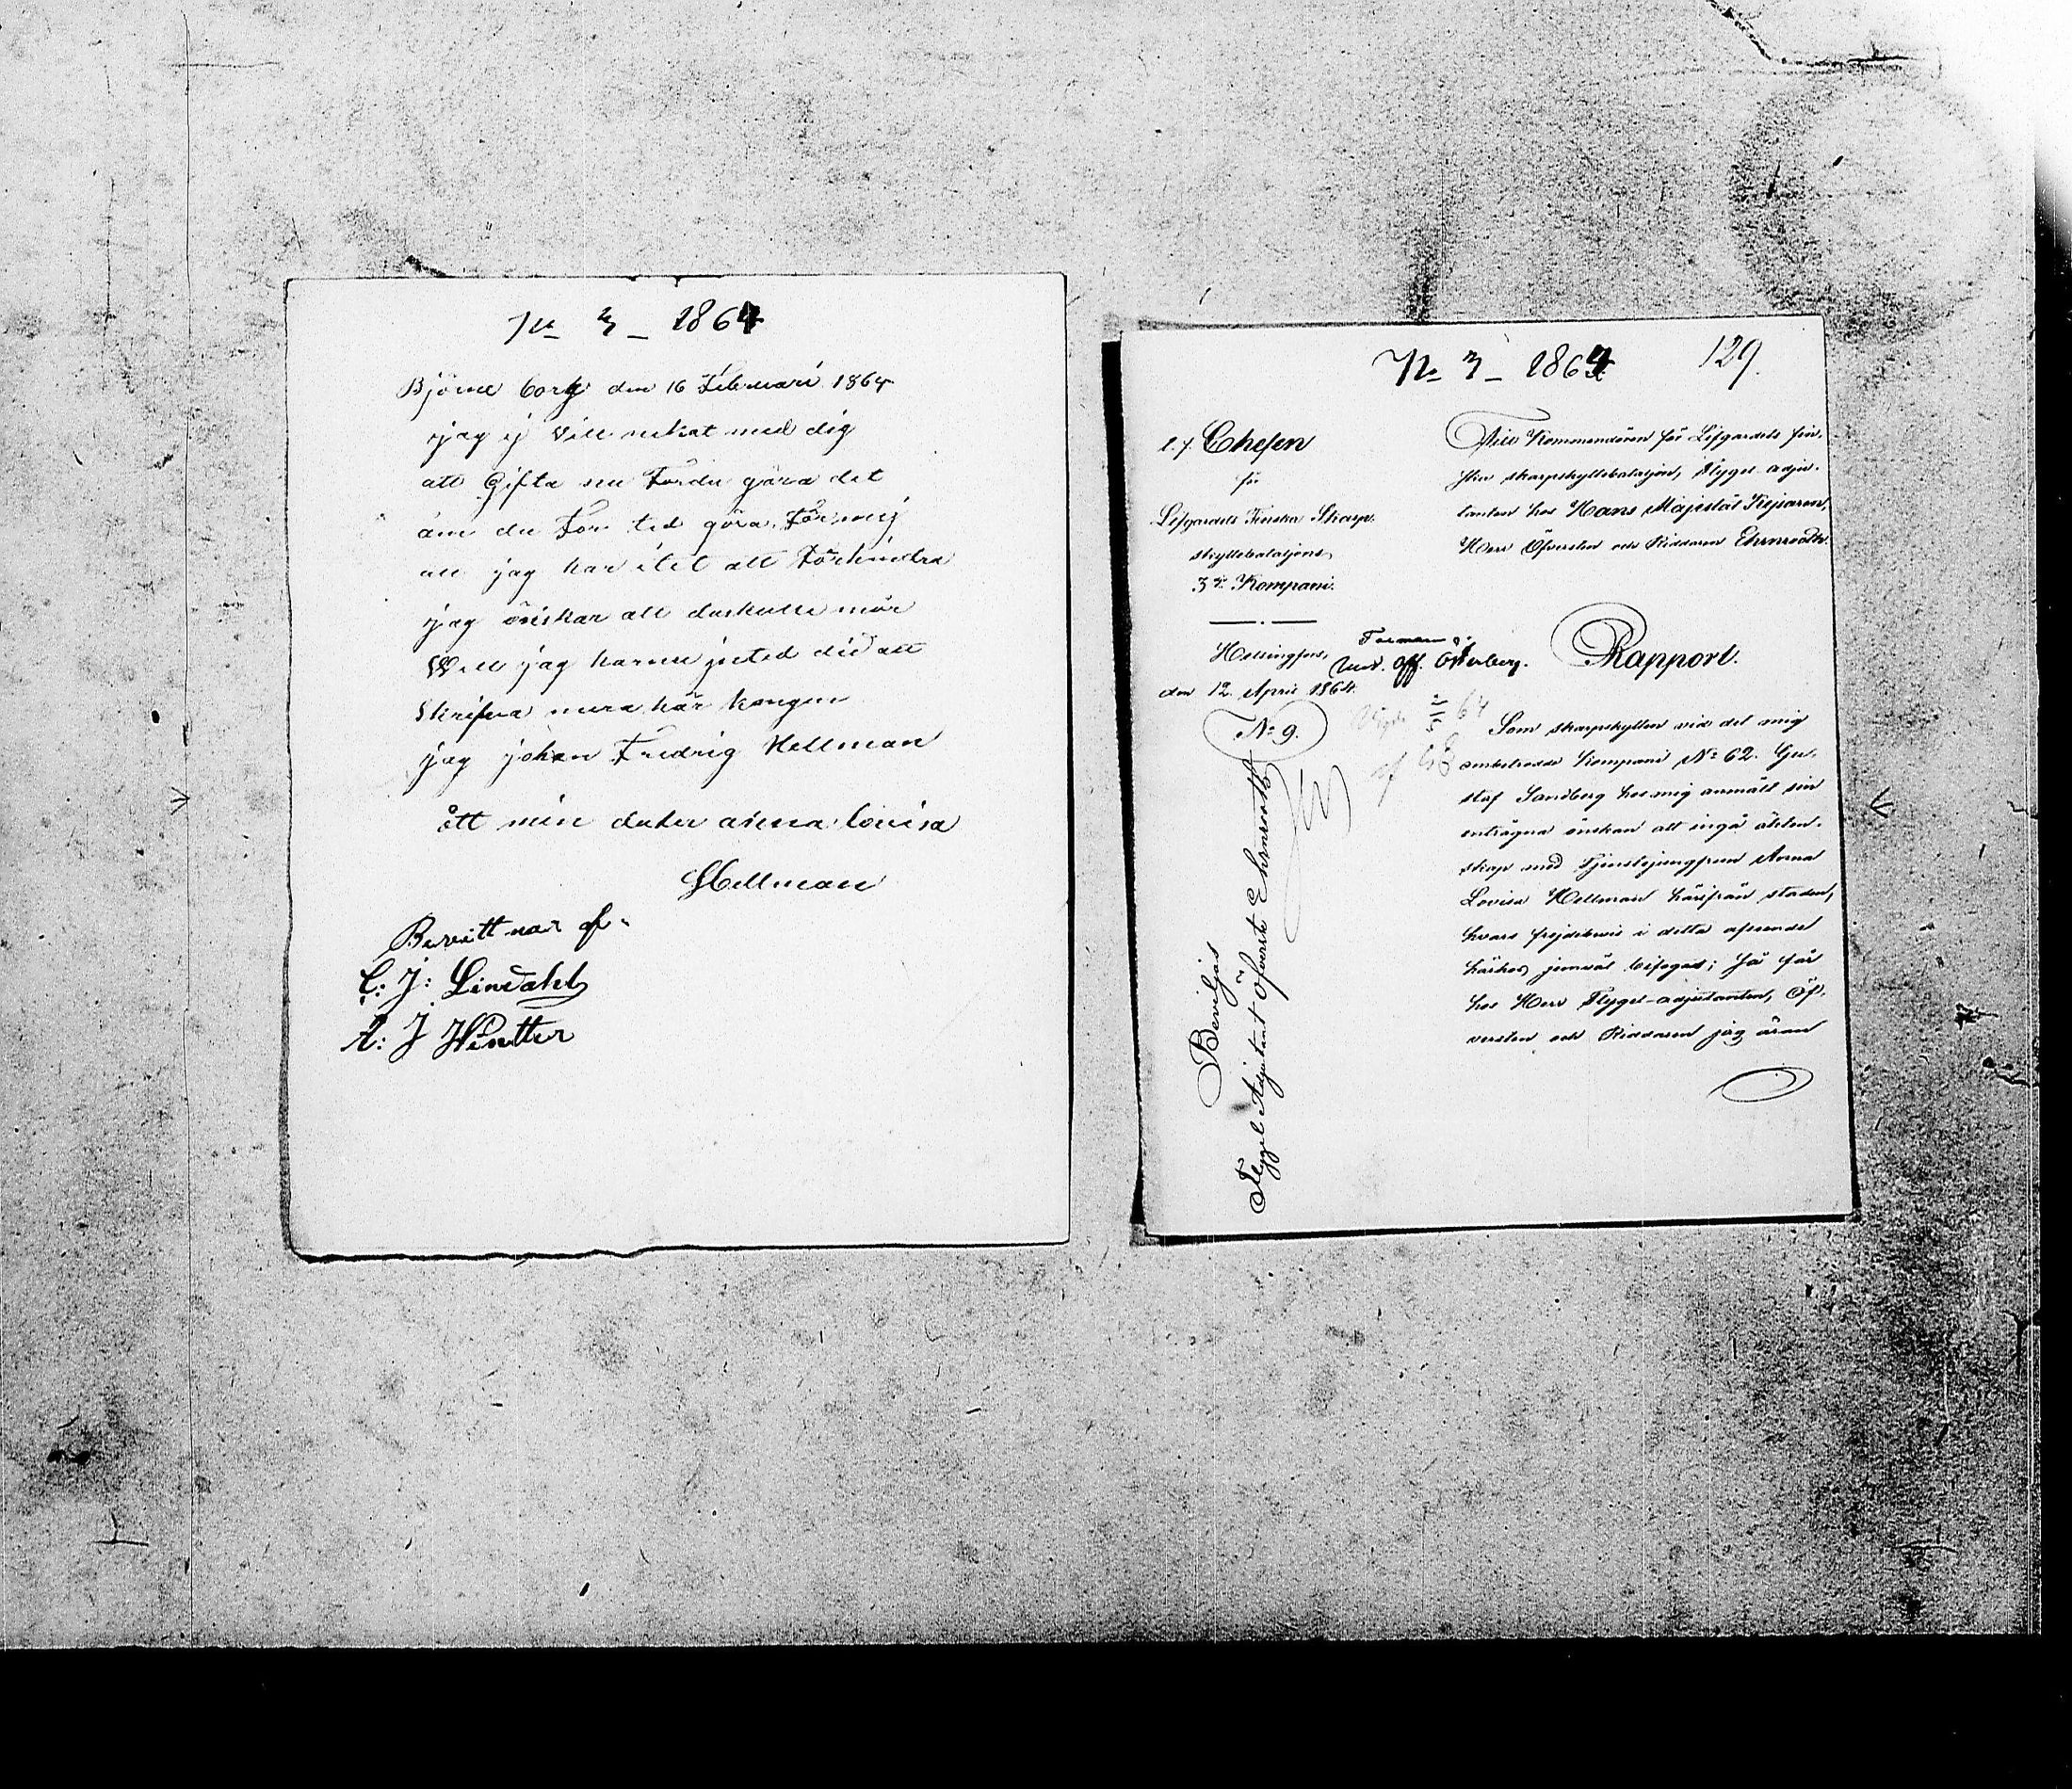 No 3 - 1864
Björne borg den 16 Februari 1864
jag ej Vill nekat med dig
att Gifta nu Fordu göra det
än du För ted göra För mig
än jag har itet att Förhindra
jag önskar att duskulle mår
Well jag har nu jnted did att
Skrifva mera här kangen
jag johan Fredrig Hellman
ått min duter anna lovisa
Hellman
Bevitt nar af
C: J: Lindahl
A: J Wintter
No 3 - 1864
129.
t. f. Chefen
för
Lifgardets Finska Skarp-
skyttebataljons
3e Kompani.
Helsingfors,
den 12 April 1864.
No 9.
Und. Off. Österberg.
Till Kommendören för Lifgardets fin-
ska skarpskyttebataljon, Flygel-adju-
tanten hos Hans Majestät Kejsaren,
Herr Öfversten och Riddaren Ehrnrooth.
Rapport.
Som skarpskytten vid det mig
ombetrodda Kompani No 62. Gu-
staf Sandberg hos mig anmält sin
enträgna önskan att ingå äkten-
skap med Tjenstejungfrun Anna
Lovisa Hellman härifrån staden,
hvars frejdebevis i detta afseende
härhos jemväl bifogas; så får
hos Herr Flygel-adjutanten, Öf-
versten och Riddaren jag äran
Beviljas
Flygel Adjutant Öfverste Ehrnrooth